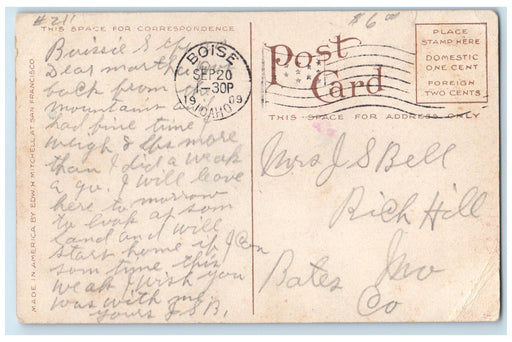 #211
$6.00
THIS SPACE FOR CORRESPONDENCE
Boisie S
Dear Martha
back from
mountains
had fine time I
weigh 3 lbs more
than I did a weak
a go. I will leave
here to morrow
to look at som
land and will
start home if I can
som time this
weak I wish you
was with me
Yours J.S.B.
MADE IN AMERICA BY EDW. H. MITCHELL AT SAN FRANCISCO
BOISE
SEP 20
1-30P
1909
IDAHO
Post Card
PLACE
STAMP HERE
DOMESTIC
ONE CENT
FOREIGN
TWO CENTS
THIS SPACE FOR ADDRESS ONLY
Mrs J S Bell
Rich Hill
Bates Mo
Co